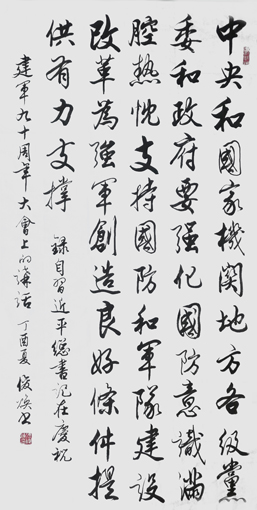 中央和國家機關地方各級黨
委和政府要强化國防意識滿
腔熱忱支持國防和軍隊建設
改革為強軍創造良好條件提
供有力支撑
錄自習近平總書記在慶祝
建軍九十周年大會上的講話 丁酉夏 俊煥書